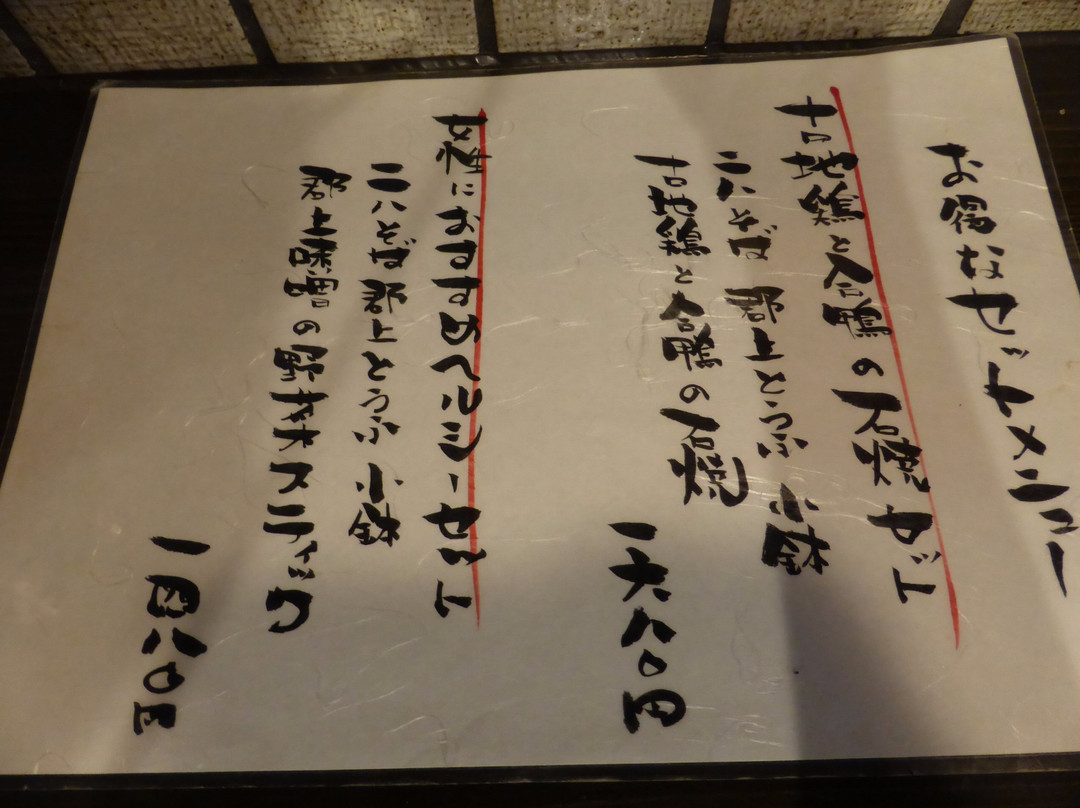 お得なセットメニュー
古地鶏と合鴨の石焼セット
二八そば 郡上とうふ 小鉢
古地鶏と合鴨の石焼
一六八〇円
女性におすすめヘルシーセット
二八そば 郡上とうふ 小鉢
郡上味噌の野菜スティック
一四八〇円